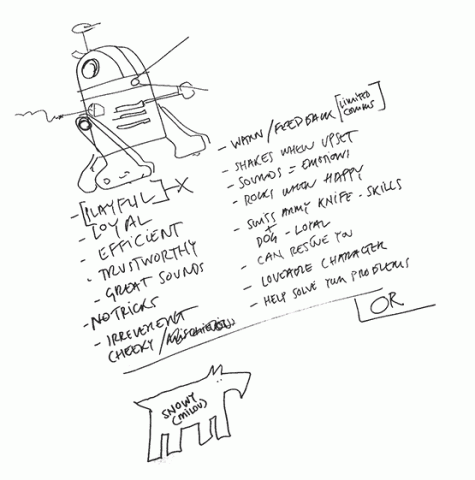 - [PLAYFUL] - X
- LOYAL
- EFFICIENT
- TRUSTWORTHY
- GREAT SOUNDS
- NO TRICKS
- IRREVERENT
CHEEKY /
- WARM / FEEDBACK [LIMITED COMMS]
- SHAKES WHEN UPSET
- SOUNDS = EMOTIONS
- ROCKS WHEN HAPPY
- SWISS ARMY KNIFE - SKILLS
+
DOG - LOYAL
- CAN RESCUE YOU
- LOVEABLE CHARACTER
- HELP SOLVE YOUR PROBLEMS
OR
SNOWY
(MILOU)